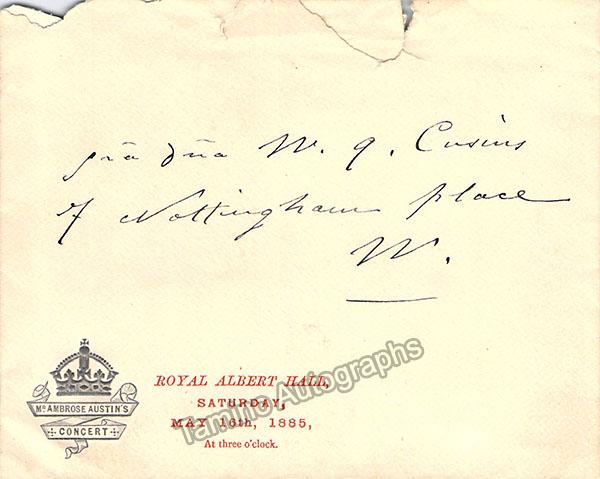 srã dña W. G. Cusins
Nottingham place
W.
Mr AMBROSE AUSTIN'S
CONCERT
ROYAL ALBERT HALL,
SATURDAY,
MAY 16th, 1885,
At three o'clock.
Tamino Autographs